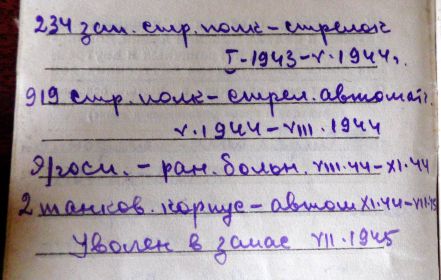 234 зап. стр. полк – стрелок
I-1943 – V. 1944г.
919 стр. полк – стрел. автомат.
V. 1944 – VIII. 1944
Э/госп. – ран. больн. VIII.44 – XI.44
2 танков. корпус – автом XI.44 – VII.45
Уволен в запас VII. 1945